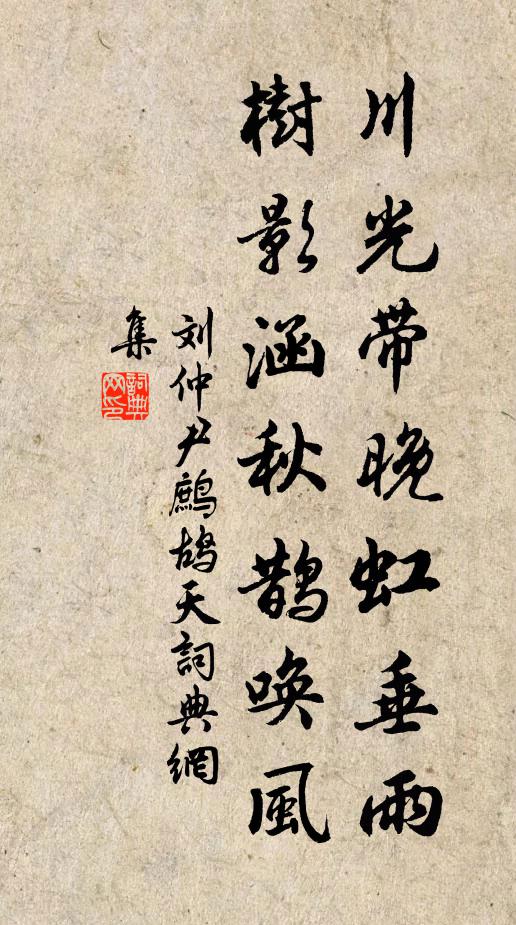 川光带晚虹垂雨
樹影涵秋鹊唤風
刘仲尹鹧鸪天詞典網
集
詞典网印